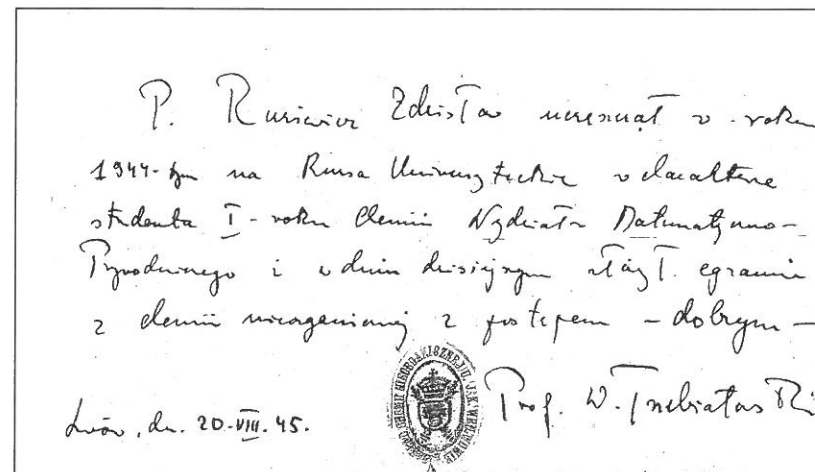 P. Rusiewicz Zdzisław uczęszczał w roku
1944-tym na Kursa Uniwersyteckie w charakterze
studenta I-roku Chemii Wydziału Matematyczno-
Przyrodniczego i w dniu dzisiejszym złożył egzamin
z chemii nieorganicznej z postępem - dobrym -
Prof. W. Trzebiatowski
Lwów, dn. 20-VIII-45.